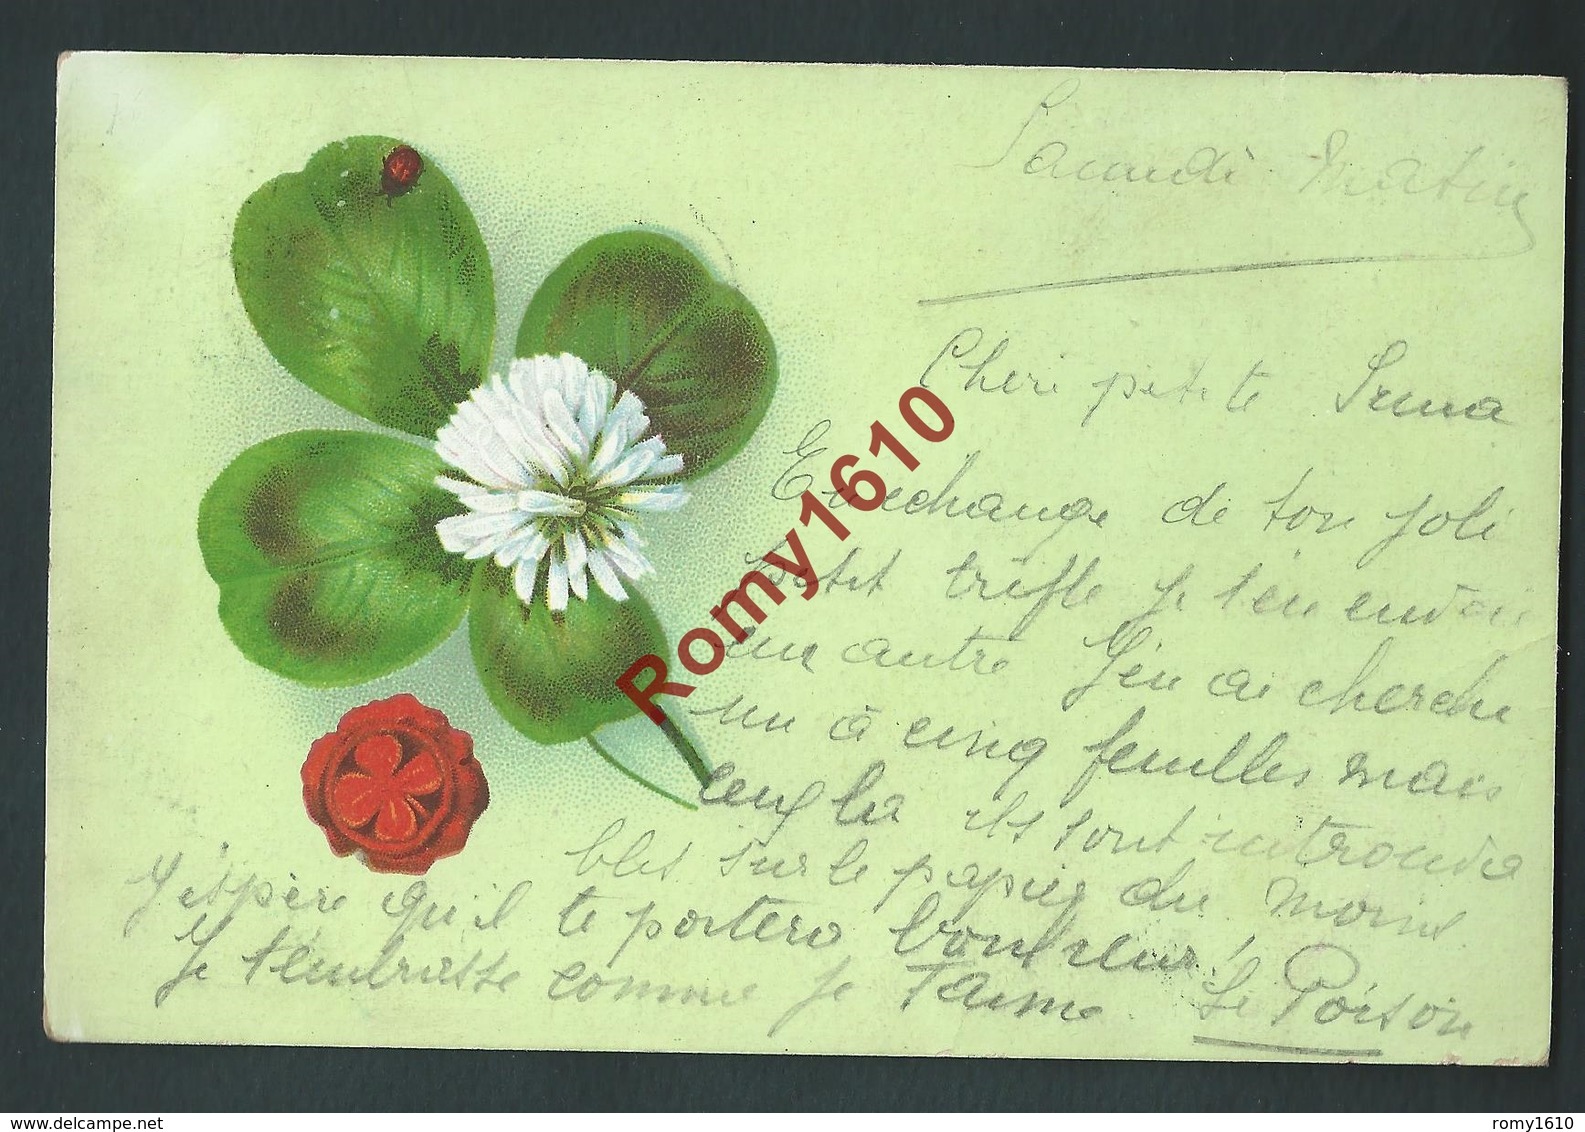 Samedi Matin
Chère petite Irma
En echange de ton joli
petit trèfle je t'en envoie
un autre J'en ai cherché
un à cinq feuilles mais
ils sont introuva
bles sur le papier du moins
J'espère qu'il te portera bonheur!
Je t'embrasse comme je t'aime Le Poison
Romy1610
www.delcampe.net
romy1610